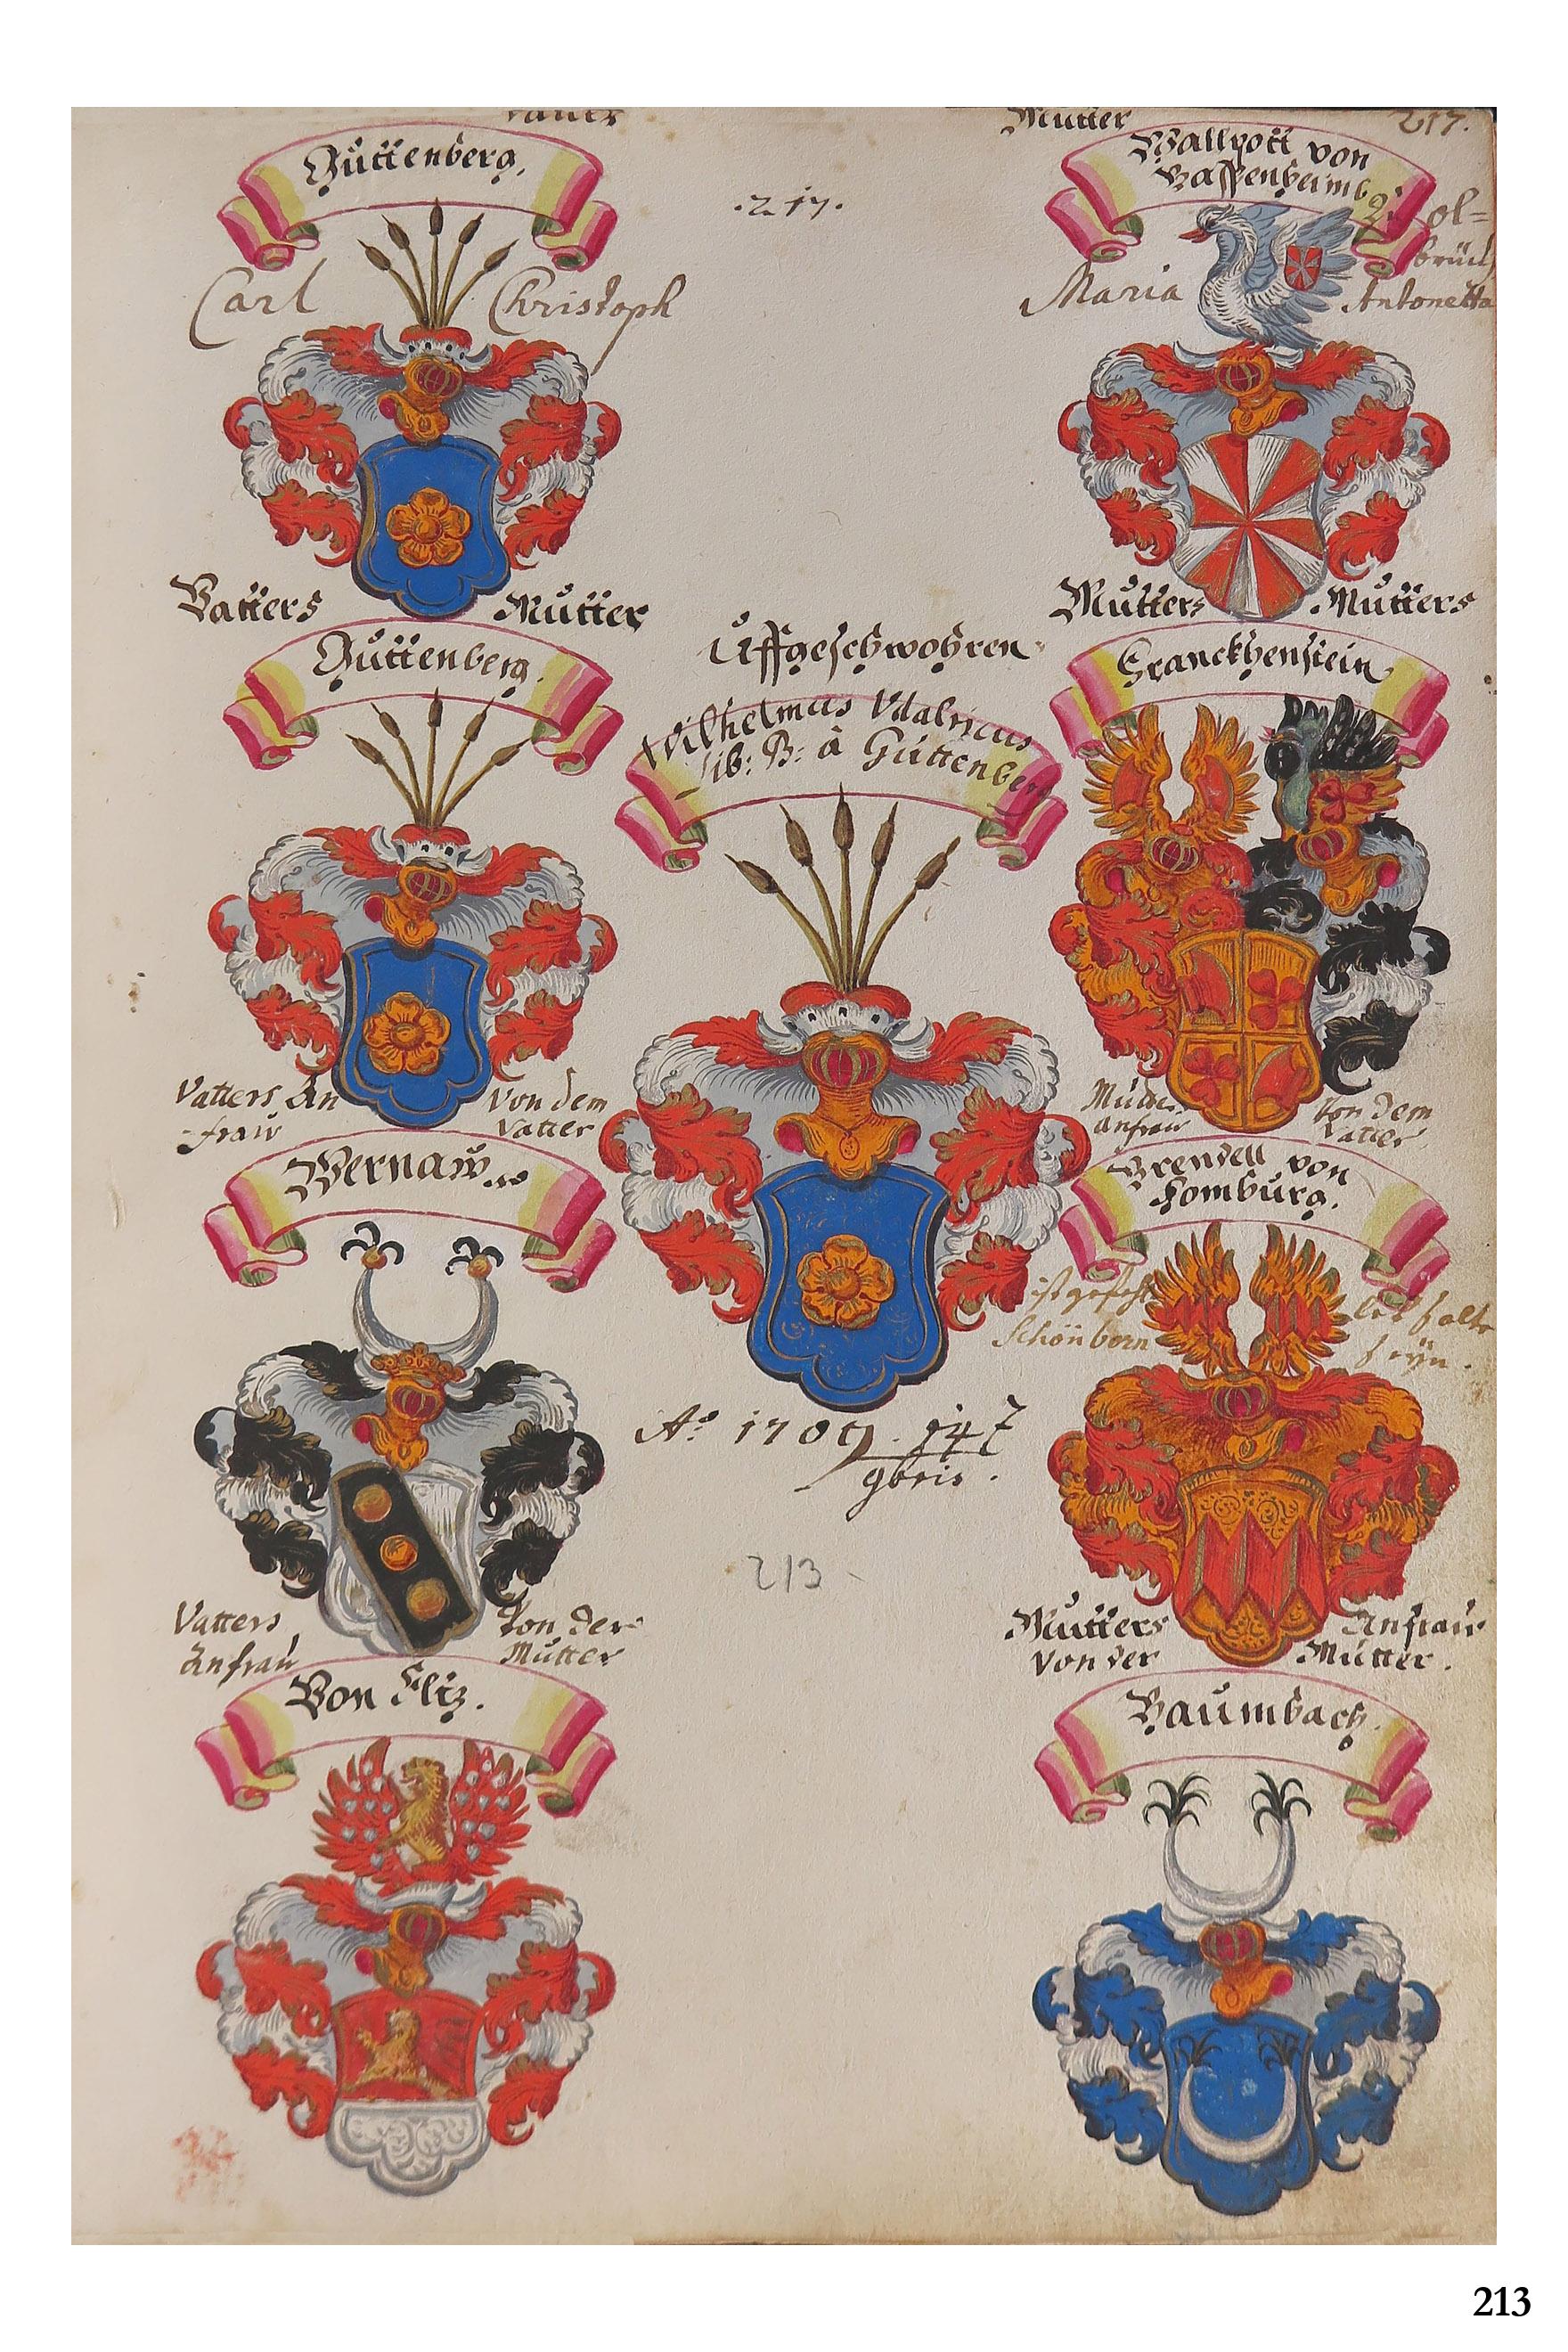 Mutter
217.
Guttenberg.
Wallpott von
Bassenheimb
.217.
Carl Christoph
Maria Antonetta
Vatters Mutter
Mutters Mutters
Guttenberg.
Uffgeschwohren
Franckhenstein
Wilhelmus Udalricus
lib: B: à Guttenberg
Vatters An
fraw
Von dem
Vatter
Anfraw
Von dem
Vatter
Wernaw
Brendell von
Homburg.
Schönborn
seÿn.
Ao. 1709. 147
9bris.
213
Vatters
Anfraw
Von der
Mutter
Mutters Anfraw
Von der Mutter.
Von Eltz.
Baumbach.
213